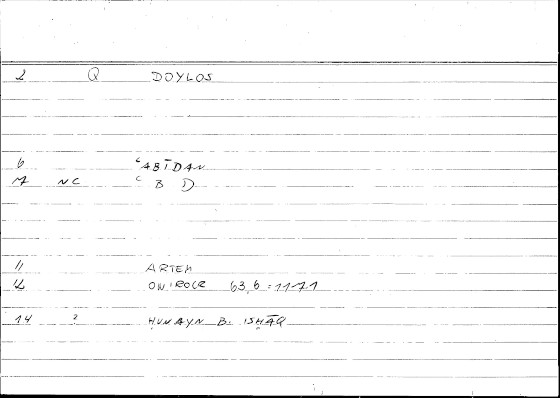 2 Q DOYLOS
6 ʿABĪDAN
7 NC ʿ B D
11 ARTEM
12 ONIROCR 63,6 = 11-71
14 ? ḤUNAYN B. ISḤĀQ